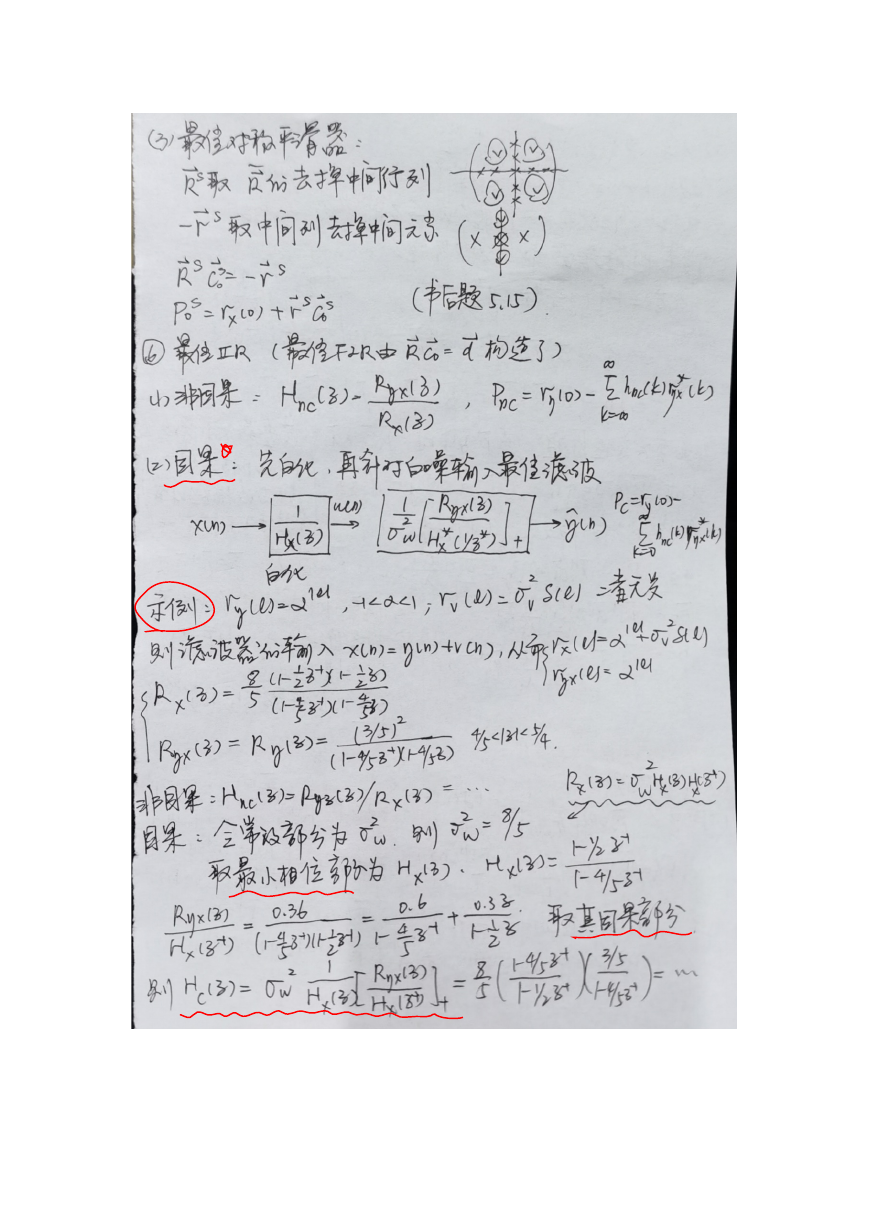 (3) 最佳对称平滑器：
R⃗ˢ取 R⃗ 的去掉中间行列
-r⃗ˢ 取中间列去掉中间元素
R⃗ˢ c⃗₀ˢ = -r⃗ˢ
P₀ˢ = rₓ(0) + r⃗ˢ c⃗₀ˢ （书后题 5.15）.
⑥ 最佳IIR （最佳FIR由 R⃗ c⃗₀ = d⃗ 构造了）
(1) 非因果： H_nc(z) = R_yx(z) / R_x(z) , P_nc = r_y(0) - Σ_{k=∞}^{∞} h_nc(k) r_yx*(k)
(2) 因果☆： 先白化，再针对白噪输入最佳滤波
x(n) → [1 / H_x(z)] w(n) → 1/σ_w² [R_yx(z) / H_x*(1/z*)]₊ → ŷ(n) P_c = r_y(0) - Σ_{k=0}^{∞} h_nc(k) r_yx*(k)
白化
示例： r_y(l) = α^|l| , -1<α<1 ; r_v(l) = σ_v² δ(l) 二者无关
则滤波器的输入 x(n) = y(n) + v(n), 从而 { r_x(l) = α^|l| + σ_v² δ(l)
r_yx(l) = α^|l|
{ R_x(z) = 8/5 (1-½z⁻¹)(1-½z) / (1-4/5z⁻¹)(1-4/5z)
R_yx(z) = R_y(z) = (3/5)² / (1-4/5z⁻¹)(1-4/5z) 4/5<|z|<5/4.
非因果：H_nc(z) = R_yx(z) / R_x(z) = ⋯ R_x(z) = σ_w² H_x(z) H_x(z⁻¹)
因果：令常数部分为 σ_w². 则 σ_w² = 8/5
取最小相位部分为 H_x(z). H_x(z) = 1-1/2z⁻¹ / 1-4/5z⁻¹
R_yx(z) / H_x(z⁻¹) = 0.36 / (1-4/5z⁻¹)(1-½z⁻¹) = 0.6 / 1-4/5z⁻¹ + 0.3z / 1-½z . 取其因果部分
则 H_c(z) = σ_w² 1/H_x(z) [R_yx(z) / H_x(z⁻¹)]₊ = 8/5 (1-4/5z⁻¹ / 1-1/2z⁻¹)(3/5 / 1-4/5z⁻¹) = ⋯